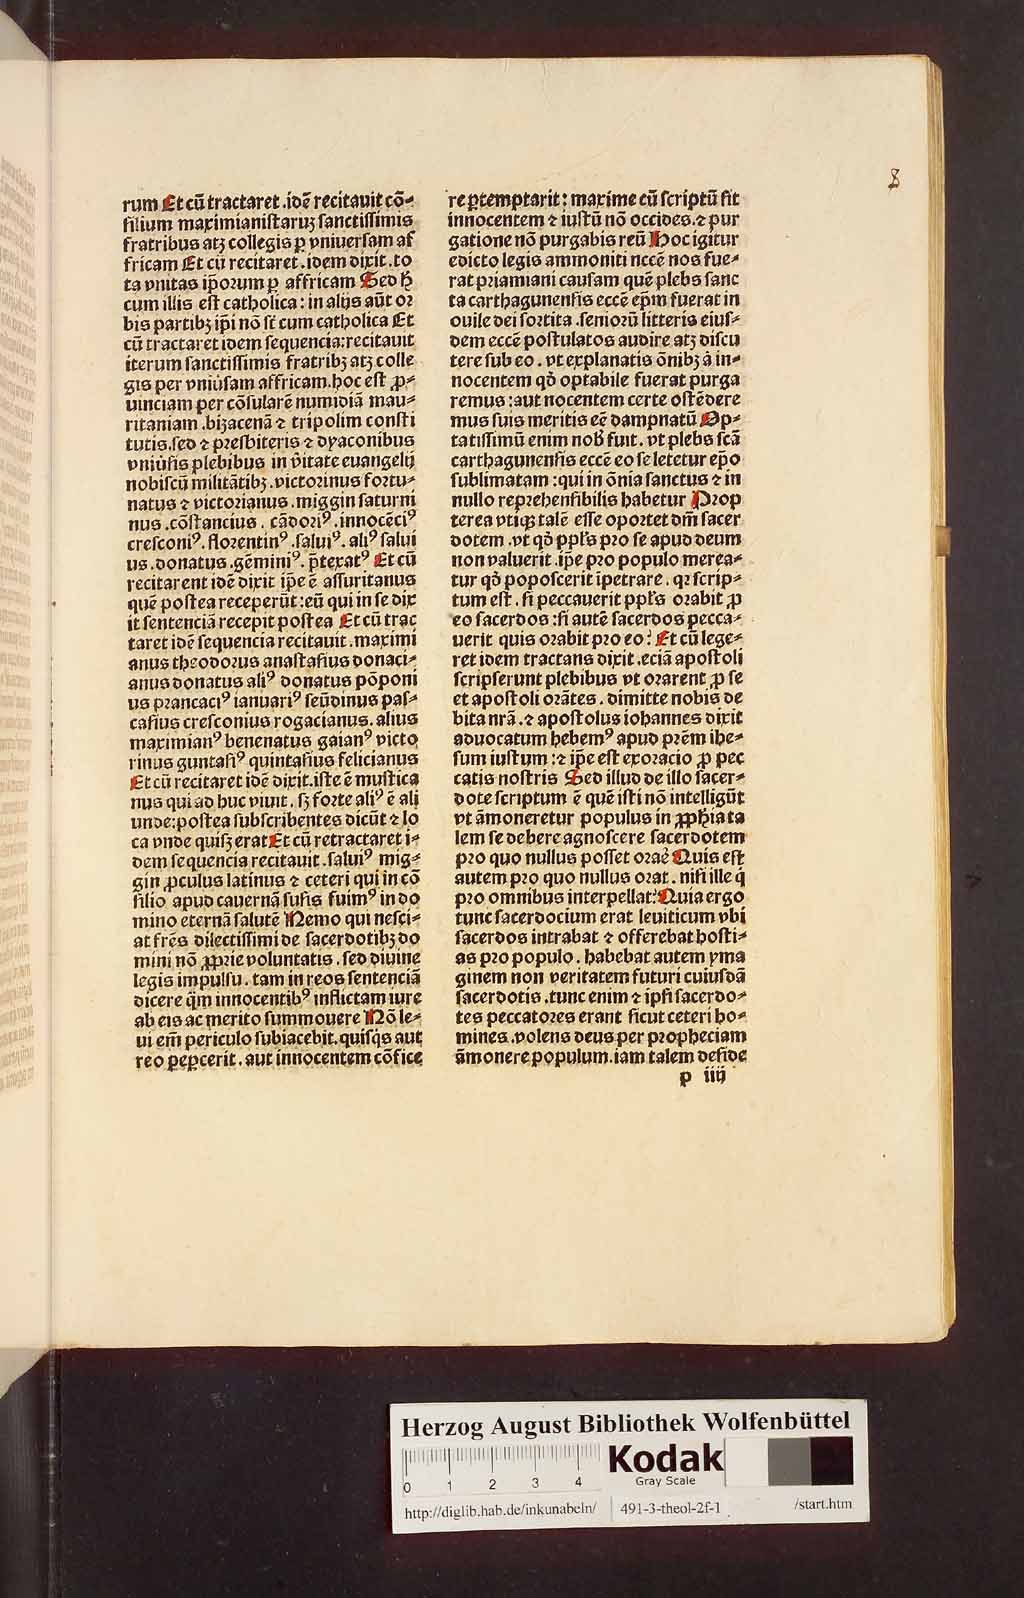 8
rum Et cū tractaret .idē recitauit cō⸗
silium maximianistaruꝫ sanctissimis
fratribus atꝫ collegis ꝑ vniuersam af
fricam Et cū recitaret .idem dixit .to
ta vnitas ip̄orum ꝑ affricam Sed h̄
cum illis est catholica : in alijs aūt or
bis partibꝫ ip̄i nō st̄ cum catholica Et
cū tractaret idem sequencia:recitauit
iterum sanctissimis fratribꝫ atꝫ colle
gis per vniūsam affricam.hoc est ꝓ⸗
uinciam per cōsularē numidiā mau⸗
ritaniam .biꝫacenā ⁊ tripolim consti
tutis.sed ⁊ presbiteris ⁊ dyaconibus
vniūsis plebibus in v̄itate euangelij
nobiscū militātibꝫ .victorinus fortu⸗
natus ⁊ victorianus .miggin saturni
nus .cōstancius . cādoriꝰ .innocēciꝰ
cresconiꝰ . florentinꝰ .saluiꝰ . aliꝰ salui
us .donatus .gēminiꝰ . p̄textatꝰ Et cū
recitarent idē dixit ip̄e ē assuritanus
quē postea receperūt :eū qui in se dix
it sentenciā recepit postea Et cū trac
taret idē sequencia recitauit .maximi
anus theodorus anastasius donaci⸗
anus donatus aliꝰ donatus pōponi
us prancaciꝰ ianuariꝰ seūdinus pas⸗
casius cresconius rogacianus. alius
maximianꝰ benenatus gaianꝰ victo
rinus guntasiꝰ quintasius felicianus
Et cū recitaret idē dixit.iste ē mustica
nus qui ad huc viuit . sꝫ forte aliꝰ ē ali
unde:postea subscribentes dicūt ⁊ lo
ca vnde quisꝫ erat Et cū retractaret i⸗
dem sequencia recitauit .saluiꝰ mig⸗
gin ꝓculus latinus ⁊ ceteri qui in cō
silio apud cauernā susis fuimꝰ in do
mino eternā salutē Nemo qui nesci⸗
at frēs dilectissimi de sacerdotibꝫ do
mini nō ꝓprie voluntatis . sed diuine
legis impulsu . tam in reos sentenciā
dicere q̄m innocentibꝰ inflictam iure
ab eis ac merito summouere Nō le⸗
ui em̄ periculo subiacebit.quisq̄s aut
reo ꝑeꝑcerit . aut innocentem cōfice
re ꝑtemptarit : maxime cū scriptū sit
innocentem ⁊ iustū nō occides.⁊ pur
gatione nō purgabis reū Hoc igitur
edicto legis ammoniti nccē nos fue⸗
rat priamiani causam quē plebs sanc
ta carthagunensis eccē ep̄m fuerat in
ouile dei sortita .seniorū litteris eius⸗
dem eccē postulatos audire atꝫ discu
tere sub eo . vt explanatis ōnibꝫ à in⸗
nocentem qd̄ optabile fuerat purga
remus :aut nocentem certe ostēdere
mus suis meritis eē dampnatū Op⸗
tatissimū enim nob̄ fuit . vt plebs scā
carthagunensis eccē eo se letetur ep̄o
sublimatam :qui in ōnia sanctus ⁊ in
nullo reprehensibilis habetur Prop
terea vtiqꝫ talē esse oportet dm̄ sacer
dotem .vt qd̄ ppl's pro se apud deum
non valuerit .ip̄e pro populo merea⸗
tur qd̄ poposcerit īpetrare . qꝛ scrip⸗
tum est . si peccauerit ppl's orabit ꝓ
eo sacerdos :si autē sacerdos pecca⸗
uerit quis orabit pro eo: Et cū lege⸗
ret idem tractans dixit .eciā apostoli
scripserunt plebibus vt orarent ꝓ se
et apostoli orātes . dimitte nobis de
bita nr̄a .⁊ apostolus iohannes dixit
aduocatum hebemꝰ apud prēm ihe⸗
sum iustum :⁊ ip̄e est exoracio ꝓ pec
catis nostris Sed illud de illo sacer⸗
dote scriptum ē quē isti nō intelligūt
vt āmoneretur populus in ꝓph̄ia ta
lem se debere agnoscere sacerdotem
pro quo nullus posset orar̄ Quis est
autem pro quo nullus orat . nisi ille q̄
pro omnibus interpellat: Quia ergo
tunc sacerdocium erat leuiticum vbi
sacerdos intrabat ⁊ offerebat hosti⸗
as pro populo . habebat autem yma
ginem non veritatem futuri cuiusdā
sacerdotis .tunc enim ⁊ ipsi sacerdo⸗
tes peccatores erant sicut ceteri ho⸗
mines .volens deus per propheciam
āmonere populum.iam talem deside
p iiij
Herzog August Bibliothek Wolfenbüttel
0 1 2 3 4
Kodak
Gray Scale
http://diglib.hab.de/inkunabeln/ 491-3-theol-2f-1 /start.htm